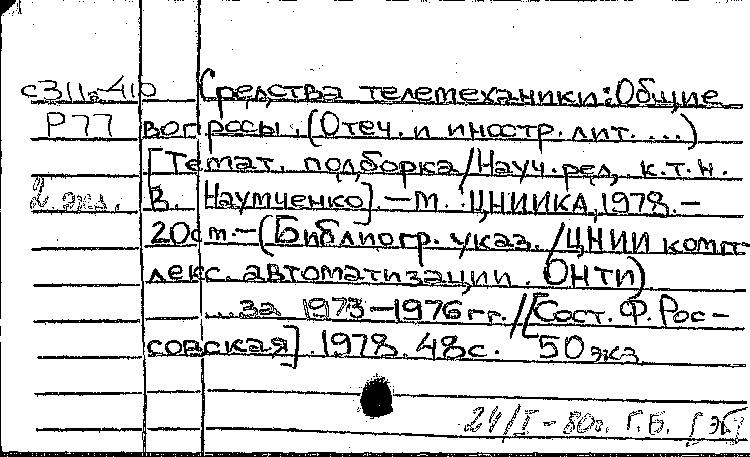 с311а-410 Средства телемеханики: Общие
Р77 вопросы. (Отеч. и иностр. лит. ...)
[Темат. подборка/Науч. ред, к.т.н.
2 экз. В. Наумченко]. — М. : ЦНИИКА, 1978. —
20см. — (Библиогр. указ. / ЦНИИ комп-
лекс. автоматизации. ОНТИ)
...за 1973—1976 гг. // [Сост. Ф. Рос-
совская]. 1978. 48с. 50 экз
24/I - 80г. Г.Б. [ЭБ]